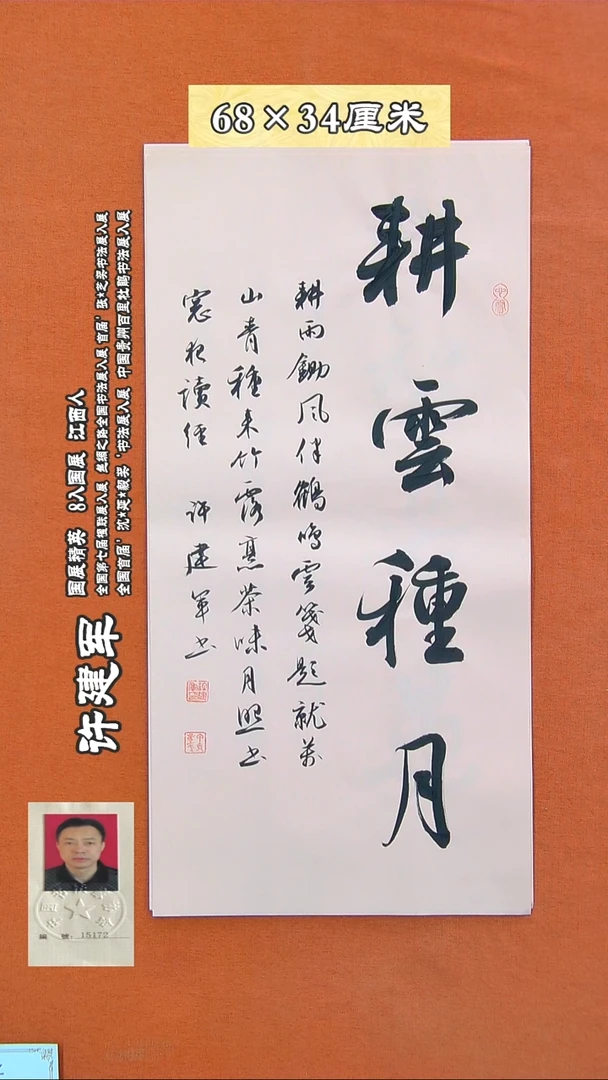 68×34厘米
耕雲種月
耕雨鋤風伴鶴鳴雲箋題就萬
山青種來竹露烹茶味月照書
窓夜讀經 許建軍书
国展精英 8入国展 江西人
全国第七届楹联展入展 丝绸之路全国书法展入展 首届'张★芝奖书法展入展
全国首届'沈★延★毅奖'书法展入展 中国贵州百里杜鹃书法展入展
许建军
編 號: 15172